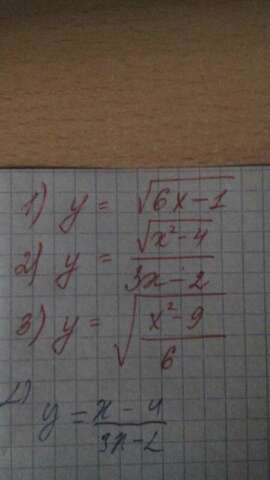 1) y = √(6x-1)
2) y = √(x²-4) / (3x-2)
3) y = √((x²-9)/6)
y = (x-4) / (3x-2)